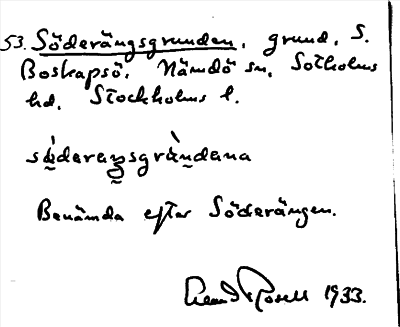 53. Söderängsgrunden, grund, S.
Boskapsö, Nämdö sn, Sotholms
hd, Stockholms l.
Benämda efter Söderängen.
Rosell 1933.